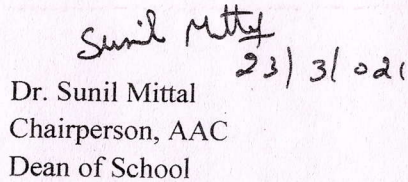 Sunil Mittal
23/3/021
Dr. Sunil Mittal
Chairperson, AAC
Dean of School